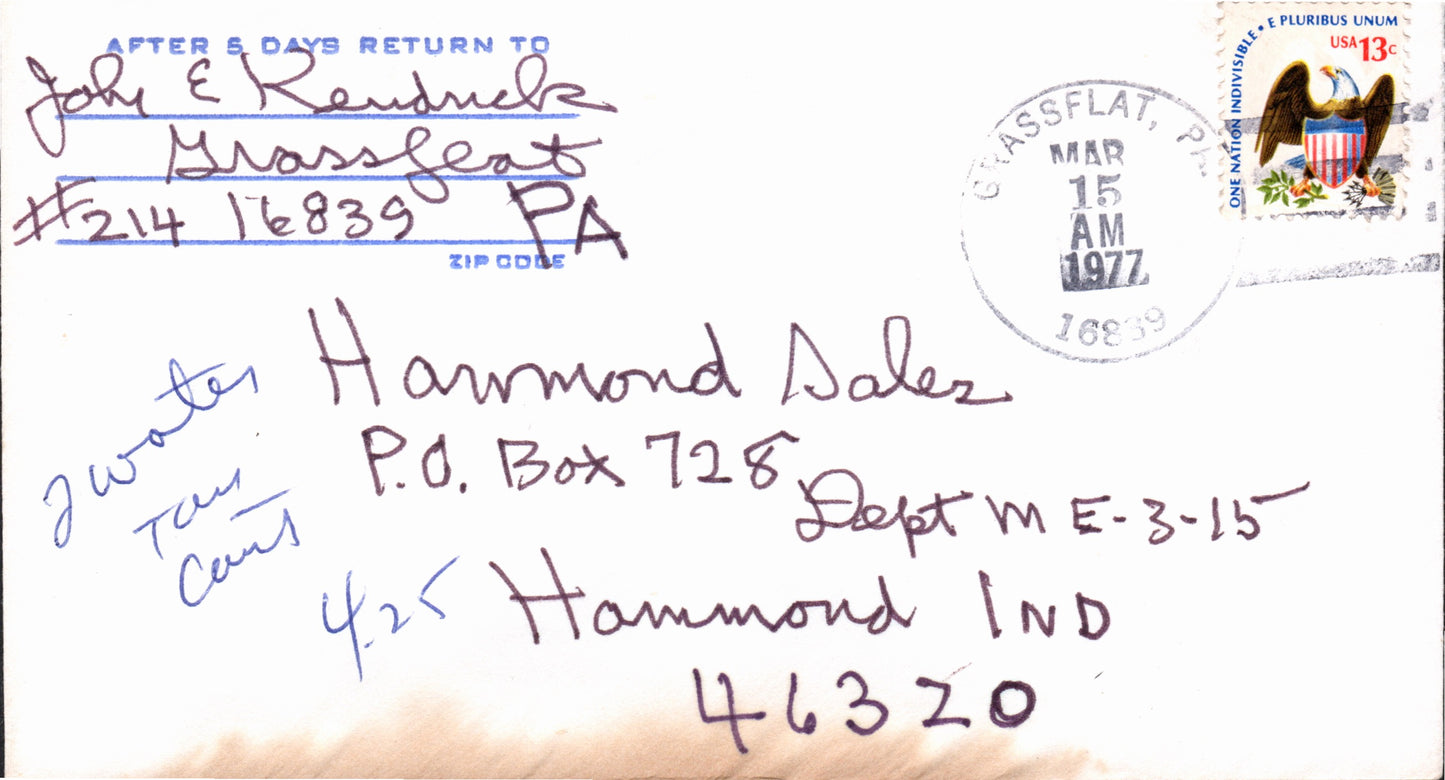 AFTER 5 DAYS RETURN TO
John E Kendrick
Grassflat
#214 16839 PA
ZIP CODE
ONE NATION INDIVISIBLE • E PLURIBUS UNUM
USA 13c
GRASSFLAT, PA.
MAR
15
AM
1977
16839
Hammond Sales
P.O. Box 728
Dept ME-3-15
Hammond IND
46320
4.25